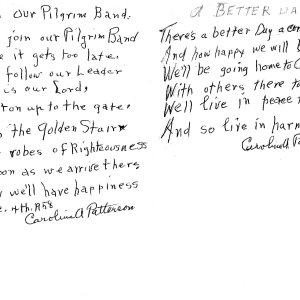 Our Pilgrim Band.
join our Pilgrim Band
e it gets too late.
follow our Leader
is our Lord,
on up to the gate.
the golden Stair
robes of Righteousness
oon as we arrive there
we'll have happiness
e. 4th. 1958
Carolina A Patterson
A BETTER DA
There's a better Day a com
And how happy we will b
We'll be going home to C
With others there to
We'll live in peace
And so live in harm
Carolina A Pat